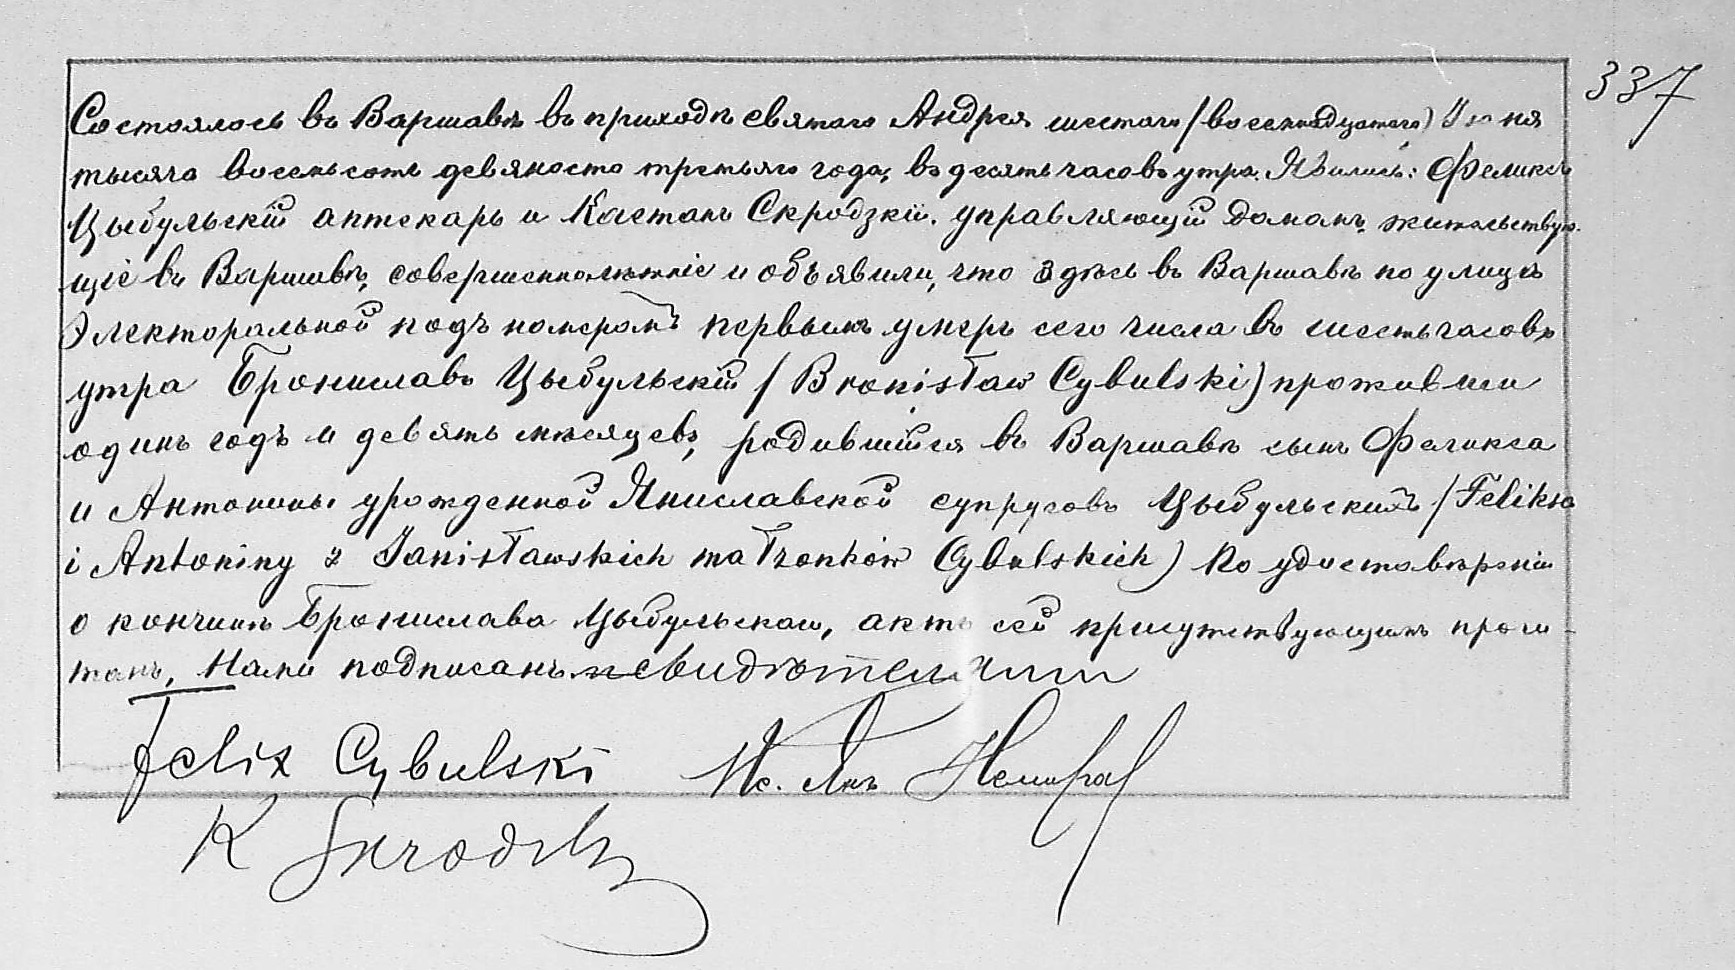 337
Состоялось въ Варшавѣ въ приходѣ святаго Андрея шестаго/восемнадцатаго) Іюня
тысяча восемьсотъ девяносто третьяго года, въ десять часовъ утра. Явились: Феликсъ
Цыбульскій аптекарь и Каетанъ Скродзкій, управляющій домомъ, жительствую-
щіе въ Варшавѣ, совершеннолѣтніе и объявили, что здѣсь въ Варшавѣ по улицѣ
Электоральной подъ номеромъ первымъ умеръ сего числа въ шесть часовъ
утра Брониславъ Цыбульскій /Bronisław Cybulski) проживши
одинъ годъ и девять мѣсяцевъ, родившійся въ Варшавѣ сынъ Феликса
и Антонины урожденной Яниславской супруговъ Цыбульскихъ /Feliksa
i Antoniny z Janisławskich małżonków Cybulskich) По удостовѣреніи
о кончинѣ Бронислава Цыбульскаго, актъ сей присутствующимъ прочи-
танъ, Нами подписанъ и свидѣтелями
Felix Cybulski Кс. Янъ
K Skrodzki